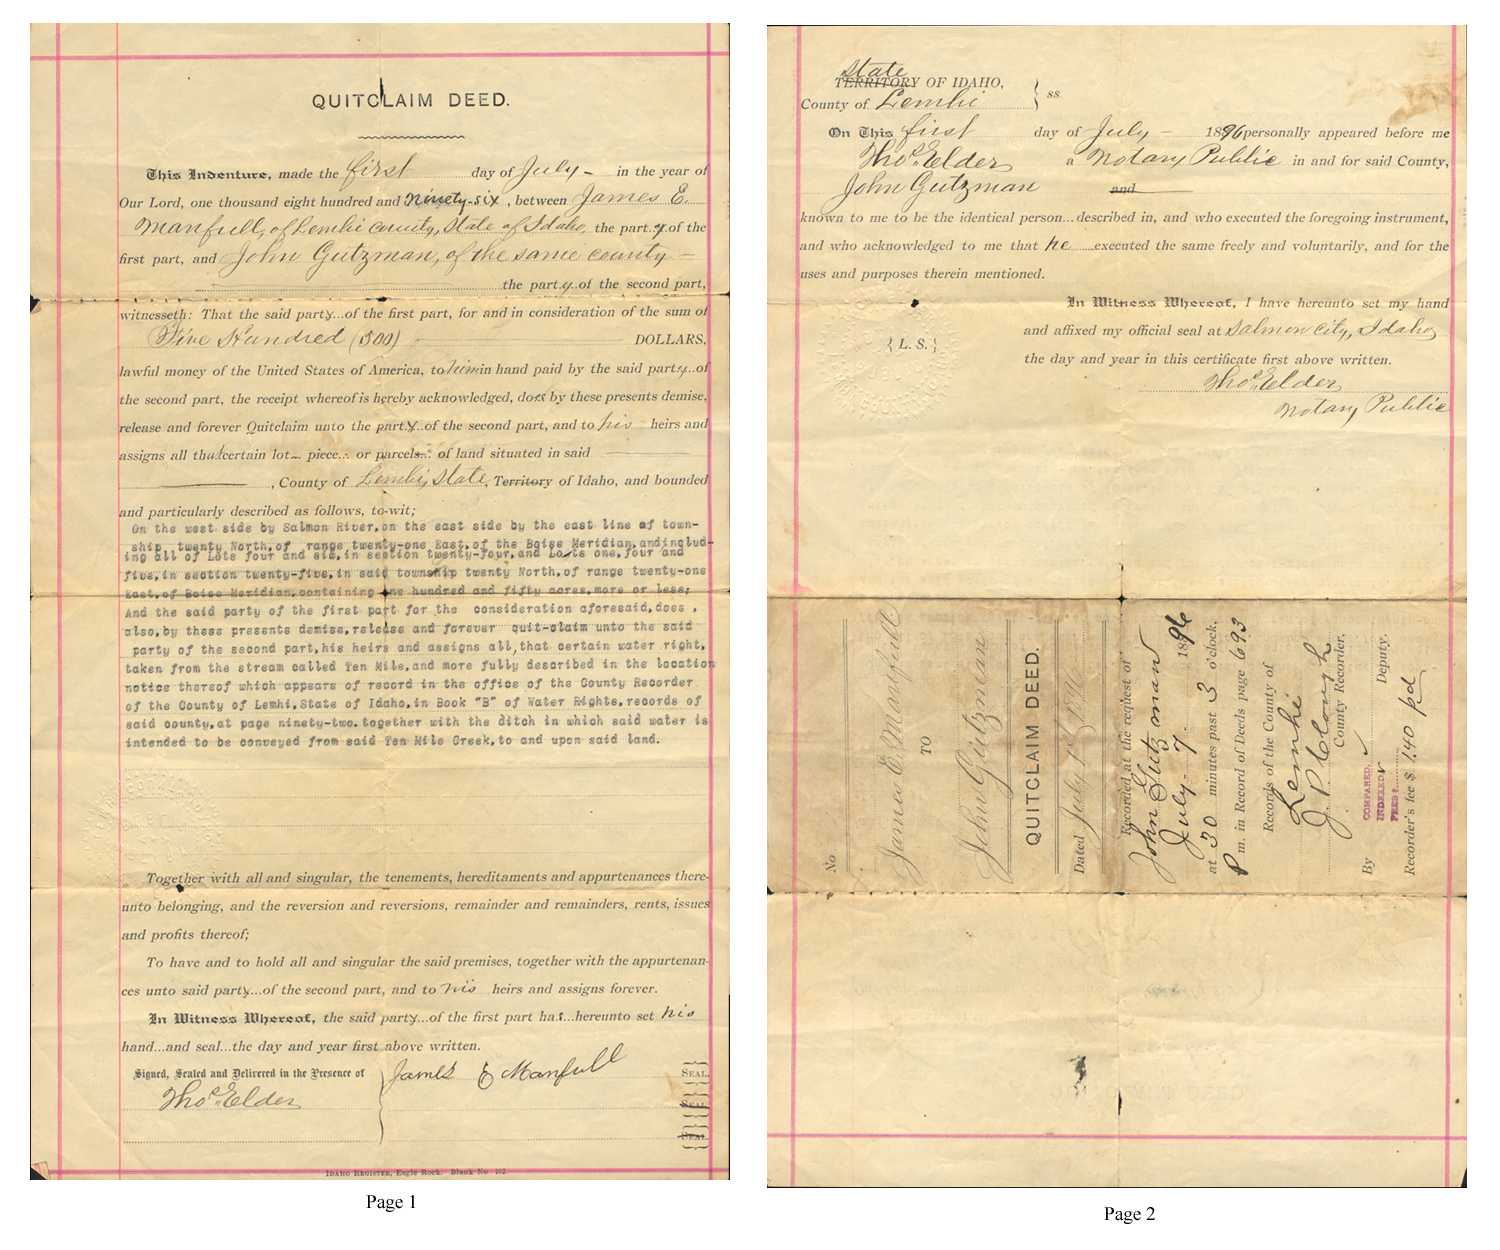 QUITCLAIM DEED.
This Indenture, made the first day of July – in the year of
Our Lord, one thousand eight hundred and ninety-six, between James E.
Manfull, of Lemhi county, State of Idaho, the party of the
first part, and John Gutzman, of the same county –
the party of the second part,
witnesseth: That the said party...of the first part, for and in consideration of the sum of
Five Hundred (500) DOLLARS,
lawful money of the United States of America, to him in hand paid by the said party..of
the second part, the receipt whereof is hereby acknowledged, does by these presents demise,
release and forever Quitclaim unto the party..of the second part, and to his heirs and
assigns all that certain lot... piece... or parcels... of land situated in said
, County of Lemhi, State, Territory of Idaho, and bounded
and particularly described as follows, to-wit;
On the west side by Salmon River, on the east side by the east line of town-
ship twenty North, of range twenty-one East, of the Boise Meridian, and includ-
ing all of Lots four and six, in section twenty-four, and Lots one, four and
five, in section twenty-five, in said township twenty North, of range twenty-one
East, of Boise Meridian, containing one hundred and fifty acres, more or less;
And the said party of the first part for the consideration aforesaid, does,
also, by these presents demise, release and forever quit-claim unto the said
party of the second part, his heirs and assigns all, that certain water right,
taken from the stream called Ten Mile, and more fully described in the location
notice thereof which appears of record in the office of the County Recorder
of the County of Lemhi, State of Idaho, in Book "B" of Water Rights, records of
said county, at page ninety-two. together with the ditch in which said water is
intended to be conveyed from said Ten Mile Creek, to and upon said land.
Together with all and singular, the tenements, hereditaments and appurtenances there-
unto belonging, and the reversion and reversions, remainder and remainders, rents, issues
and profits thereof;
To have and to hold all and singular the said premises, together with the appurtenan-
ces unto said party...of the second part, and to his heirs and assigns forever.
In Witness Whereof, the said party...of the first part has...hereunto set his
hand...and seal...the day and year first above written.
Signed, Sealed and Delivered in the Presence of
James E Manfull SEAL.
Thos Elder SEAL
SEAL
IDAHO REGISTER, Eagle Rock. Blank No 102
Page 1
State
TERRITORY OF IDAHO,
County of Lemhi } ss
On This first day of July – 1896 personally appeared before me
Thos Elder a Notary Public in and for said County,
John Gutzman and
known to me to be the identical person... described in, and who executed the foregoing instrument,
and who acknowledged to me that he ....executed the same freely and voluntarily, and for the
uses and purposes therein mentioned.
In Witness Whereof, I have hereunto set my hand
and affixed my official seal at Salmon City, Idaho
{ L. S. }
the day and year in this certificate first above written.
Thos Elder
Notary Public
No
James E. Manfull
TO
John Gutzman
QUITCLAIM DEED.
Dated July 1st 1896
Recorded at the request of
John Gutzman
July 7 1896
at 30 minutes past 3 o'clock,
P m. in Record of Deeds page 693
Records of the County of
Lemhi
J. P. Clough
County Recorder.
By Deputy.
COMPARED
INDEXED
FEES
Recorder's fee $ 1.40 pd
Page 2